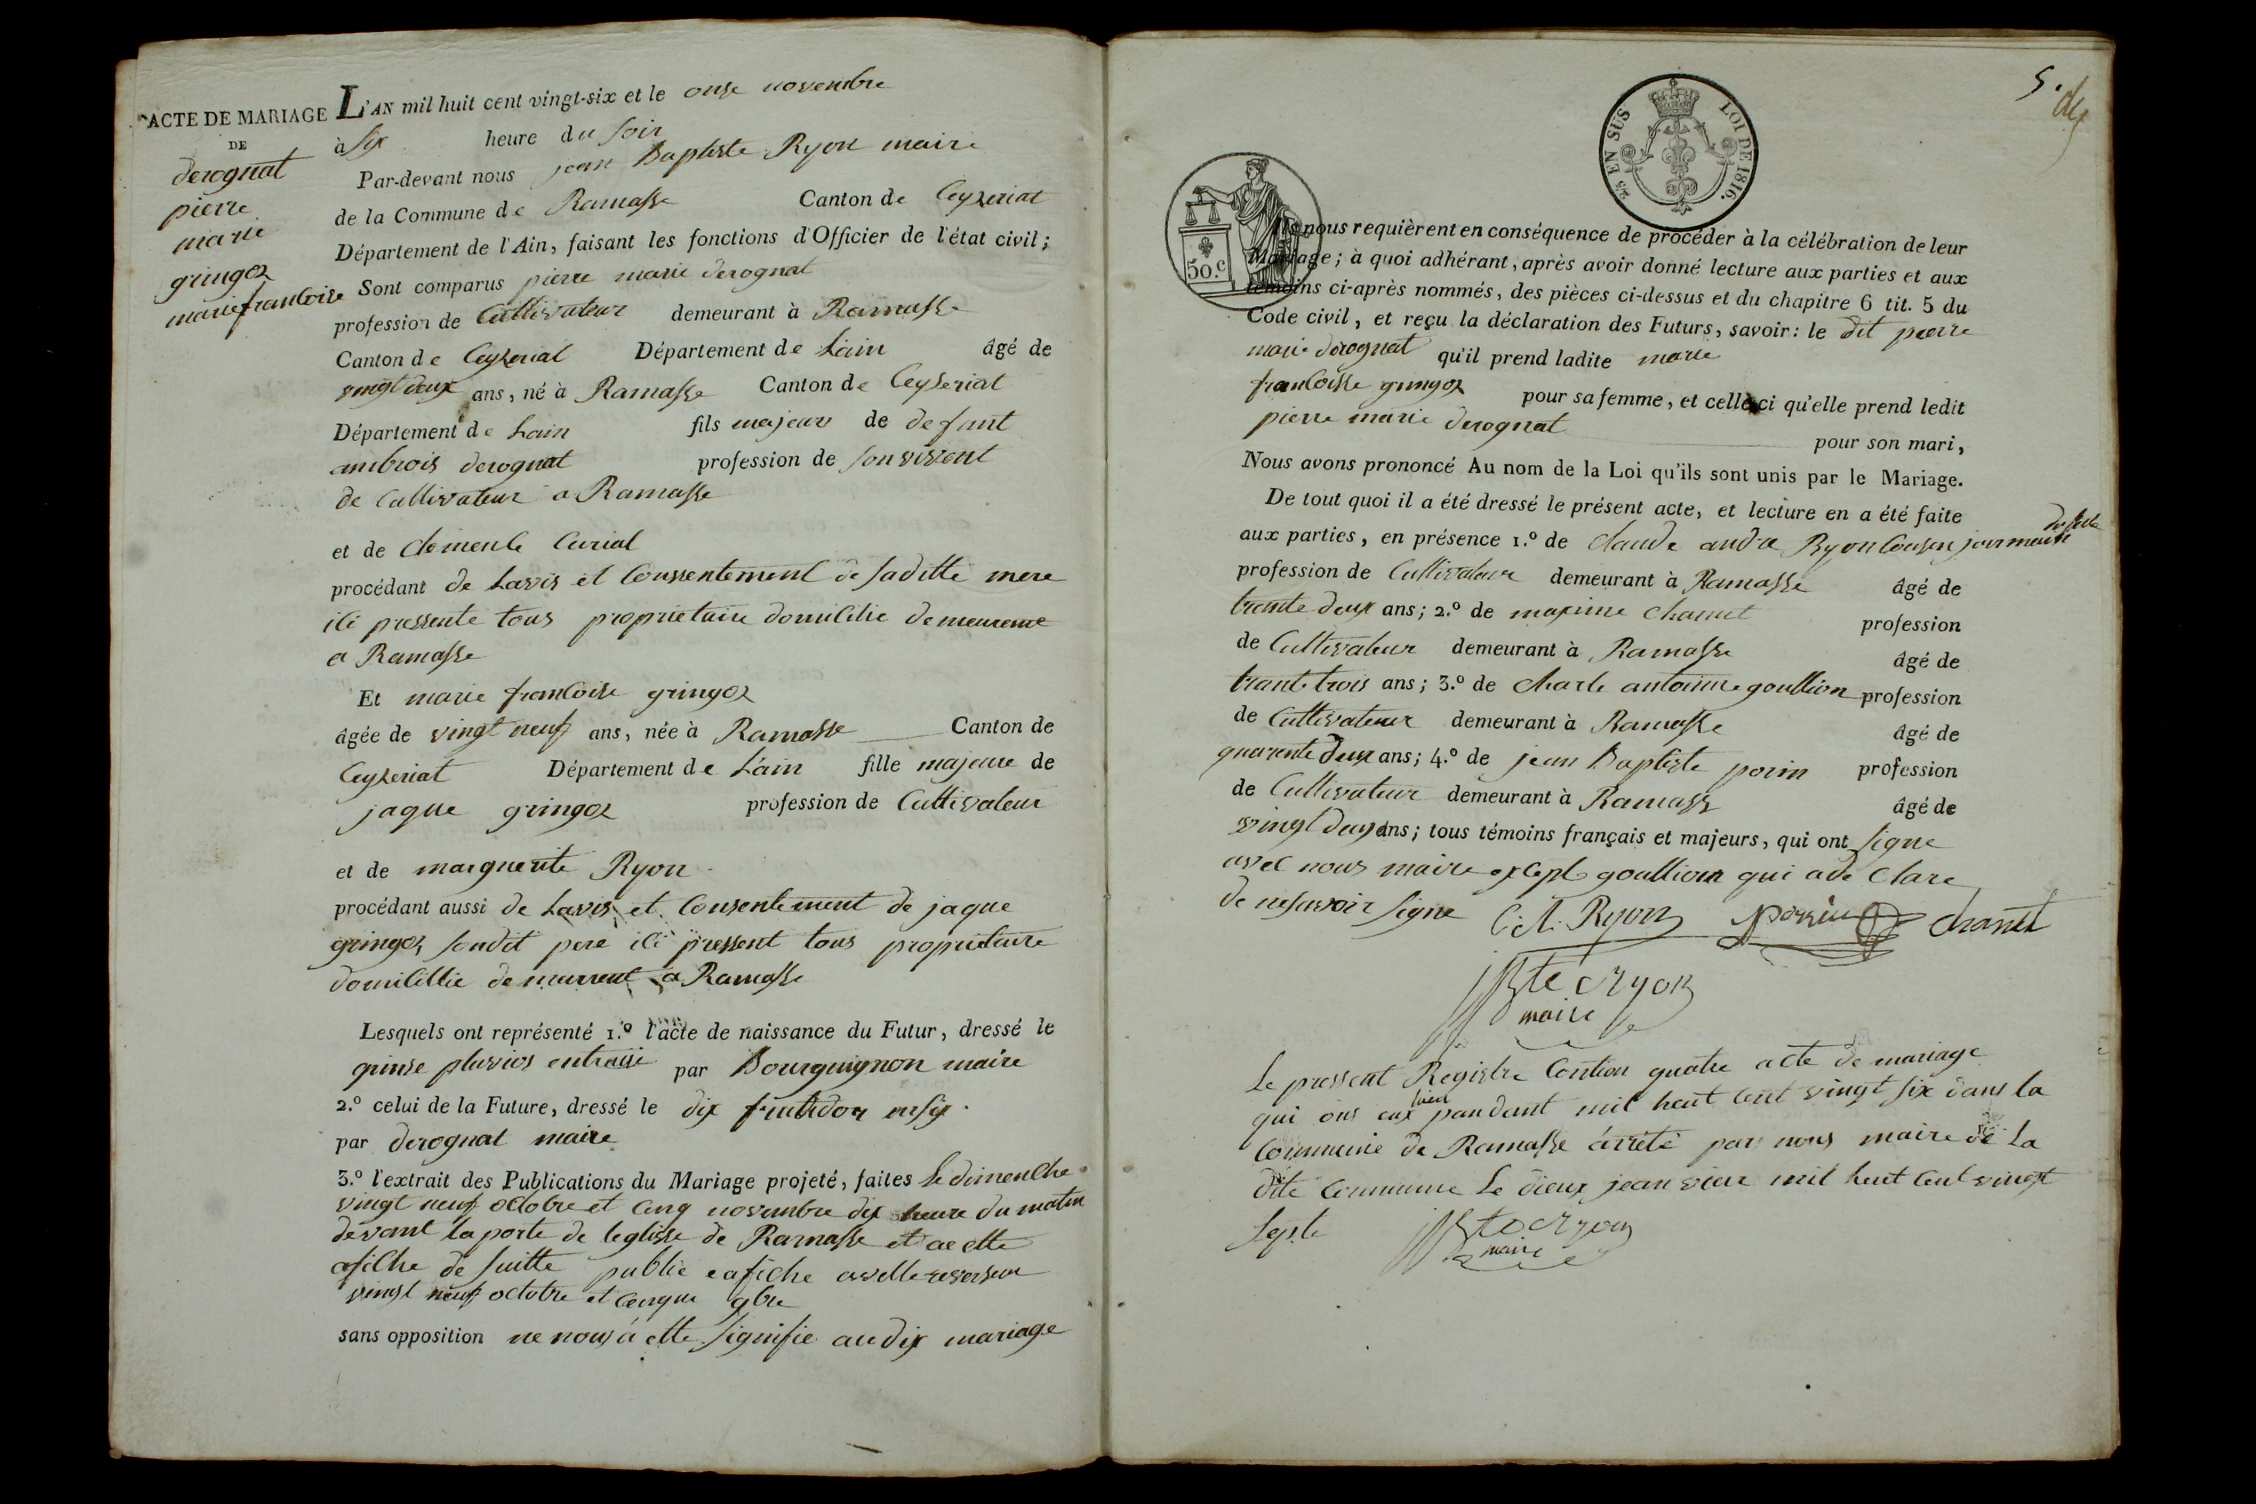 ACTE DE MARIAGE
DE
derognat
pierre
marie
gringoz
marie francoise
L'AN mil huit cent vingt-six et le onse novembre
à six heure du soir
Par-devant nous jean Baptiste Ryon maire
de la Commune de Ramasse Canton de Ceyzeriat
Département de l'Ain, faisant les fonctions d'Officier de l'état civil;
Sont comparus pierre marie derognat
profession de Cultivateur demeurant à Ramasse
Canton de Ceyzeriat Département de Lain âgé de
vingt deux ans, né à Ramasse Canton de Ceyseriat
Département de Lain fils majeur de defunt
ambrois derognat profession de son vivent
de Cultivateur a Ramasse
et de Clemente Curial
procédant de Lavis et Conssentement de sa ditte mere
ici pressente tous proprietaire domicilie demeurent
a Ramasse
Et marie francoise gringoz
âgée de vingt neuf ans, née à Ramasse Canton de
Ceyzeriat Département de Lain fille majeure de
jaque gringoz profession de Cultivateur
et de marguerite Ryon
procédant aussi de Lavis et Consentement de jaque
gringoz son dit pere ici pressent tous proprietaire
domicillie demeurent a Ramasse
Lesquels ont représenté 1.º l'acte de naissance du Futur, dressé le
quinse pluvios par Bourguignon maire
2.º celui de la Future, dressé le dix fruttidor
par derognat maire
3.º l'extrait des Publications du Mariage projeté, faites Le dimenche
vingt neuf octobre et cinq novembre dix heure du matin
devant la porte de leglisse de Ramasse et
afiche de suitte publie
vingt neuf octobre et
sans opposition ne nous a ette signifie au dix mariage
5.
25 EN SUS LOI DE 1816.
50.c
Ils nous requièrent en conséquence de procéder à la célébration de leur
Mariage; à quoi adhérant, après avoir donné lecture aux parties et aux
témoins ci-après nommés, des pièces ci-dessus et du chapitre 6 tit. 5 du
Code civil, et reçu la déclaration des Futurs, savoir: le dit pierre
marie derognat qu'il prend ladite marie
francoisse gringoz pour sa femme, et celle-ci qu'elle prend ledit
pierre marie derognat pour son mari,
Nous avons prononcé Au nom de la Loi qu'ils sont unis par le Mariage.
De tout quoi il a été dressé le présent acte, et lecture en a été faite
aux parties, en présence 1.º de Claude andre Ryon Cousin
profession de Cultivateur demeurant à Ramasse âgé de
trente deux ans; 2.º de maxime Chanut profession
de Cultivateur demeurant à Ramasse âgé de
trante trois ans; 3.º de Charle antoinne goullion profession
de Cultivateur demeurant à Ramasse âgé de
quarente deux ans; 4.º de jean Baptiste perin profession
de Cultivateur demeurant à Ramasse âgé de
vingt deux ans; tous témoins français et majeurs, qui ont signe
avec nous maire excepte goullion qui a de Clare
de ne savoir signe C. A. Ryon Chanut
JBte Ryon
maire
Le pressent Registre Contien quatre acte de mariage
qui ons eux lieu pandant mil huit cent vingt six dans la
Commune de Ramasse arrete par nous maire de La
dite Commune Le dieux jean vier mil huit Cent vingt
septe JBte Ryon
maire